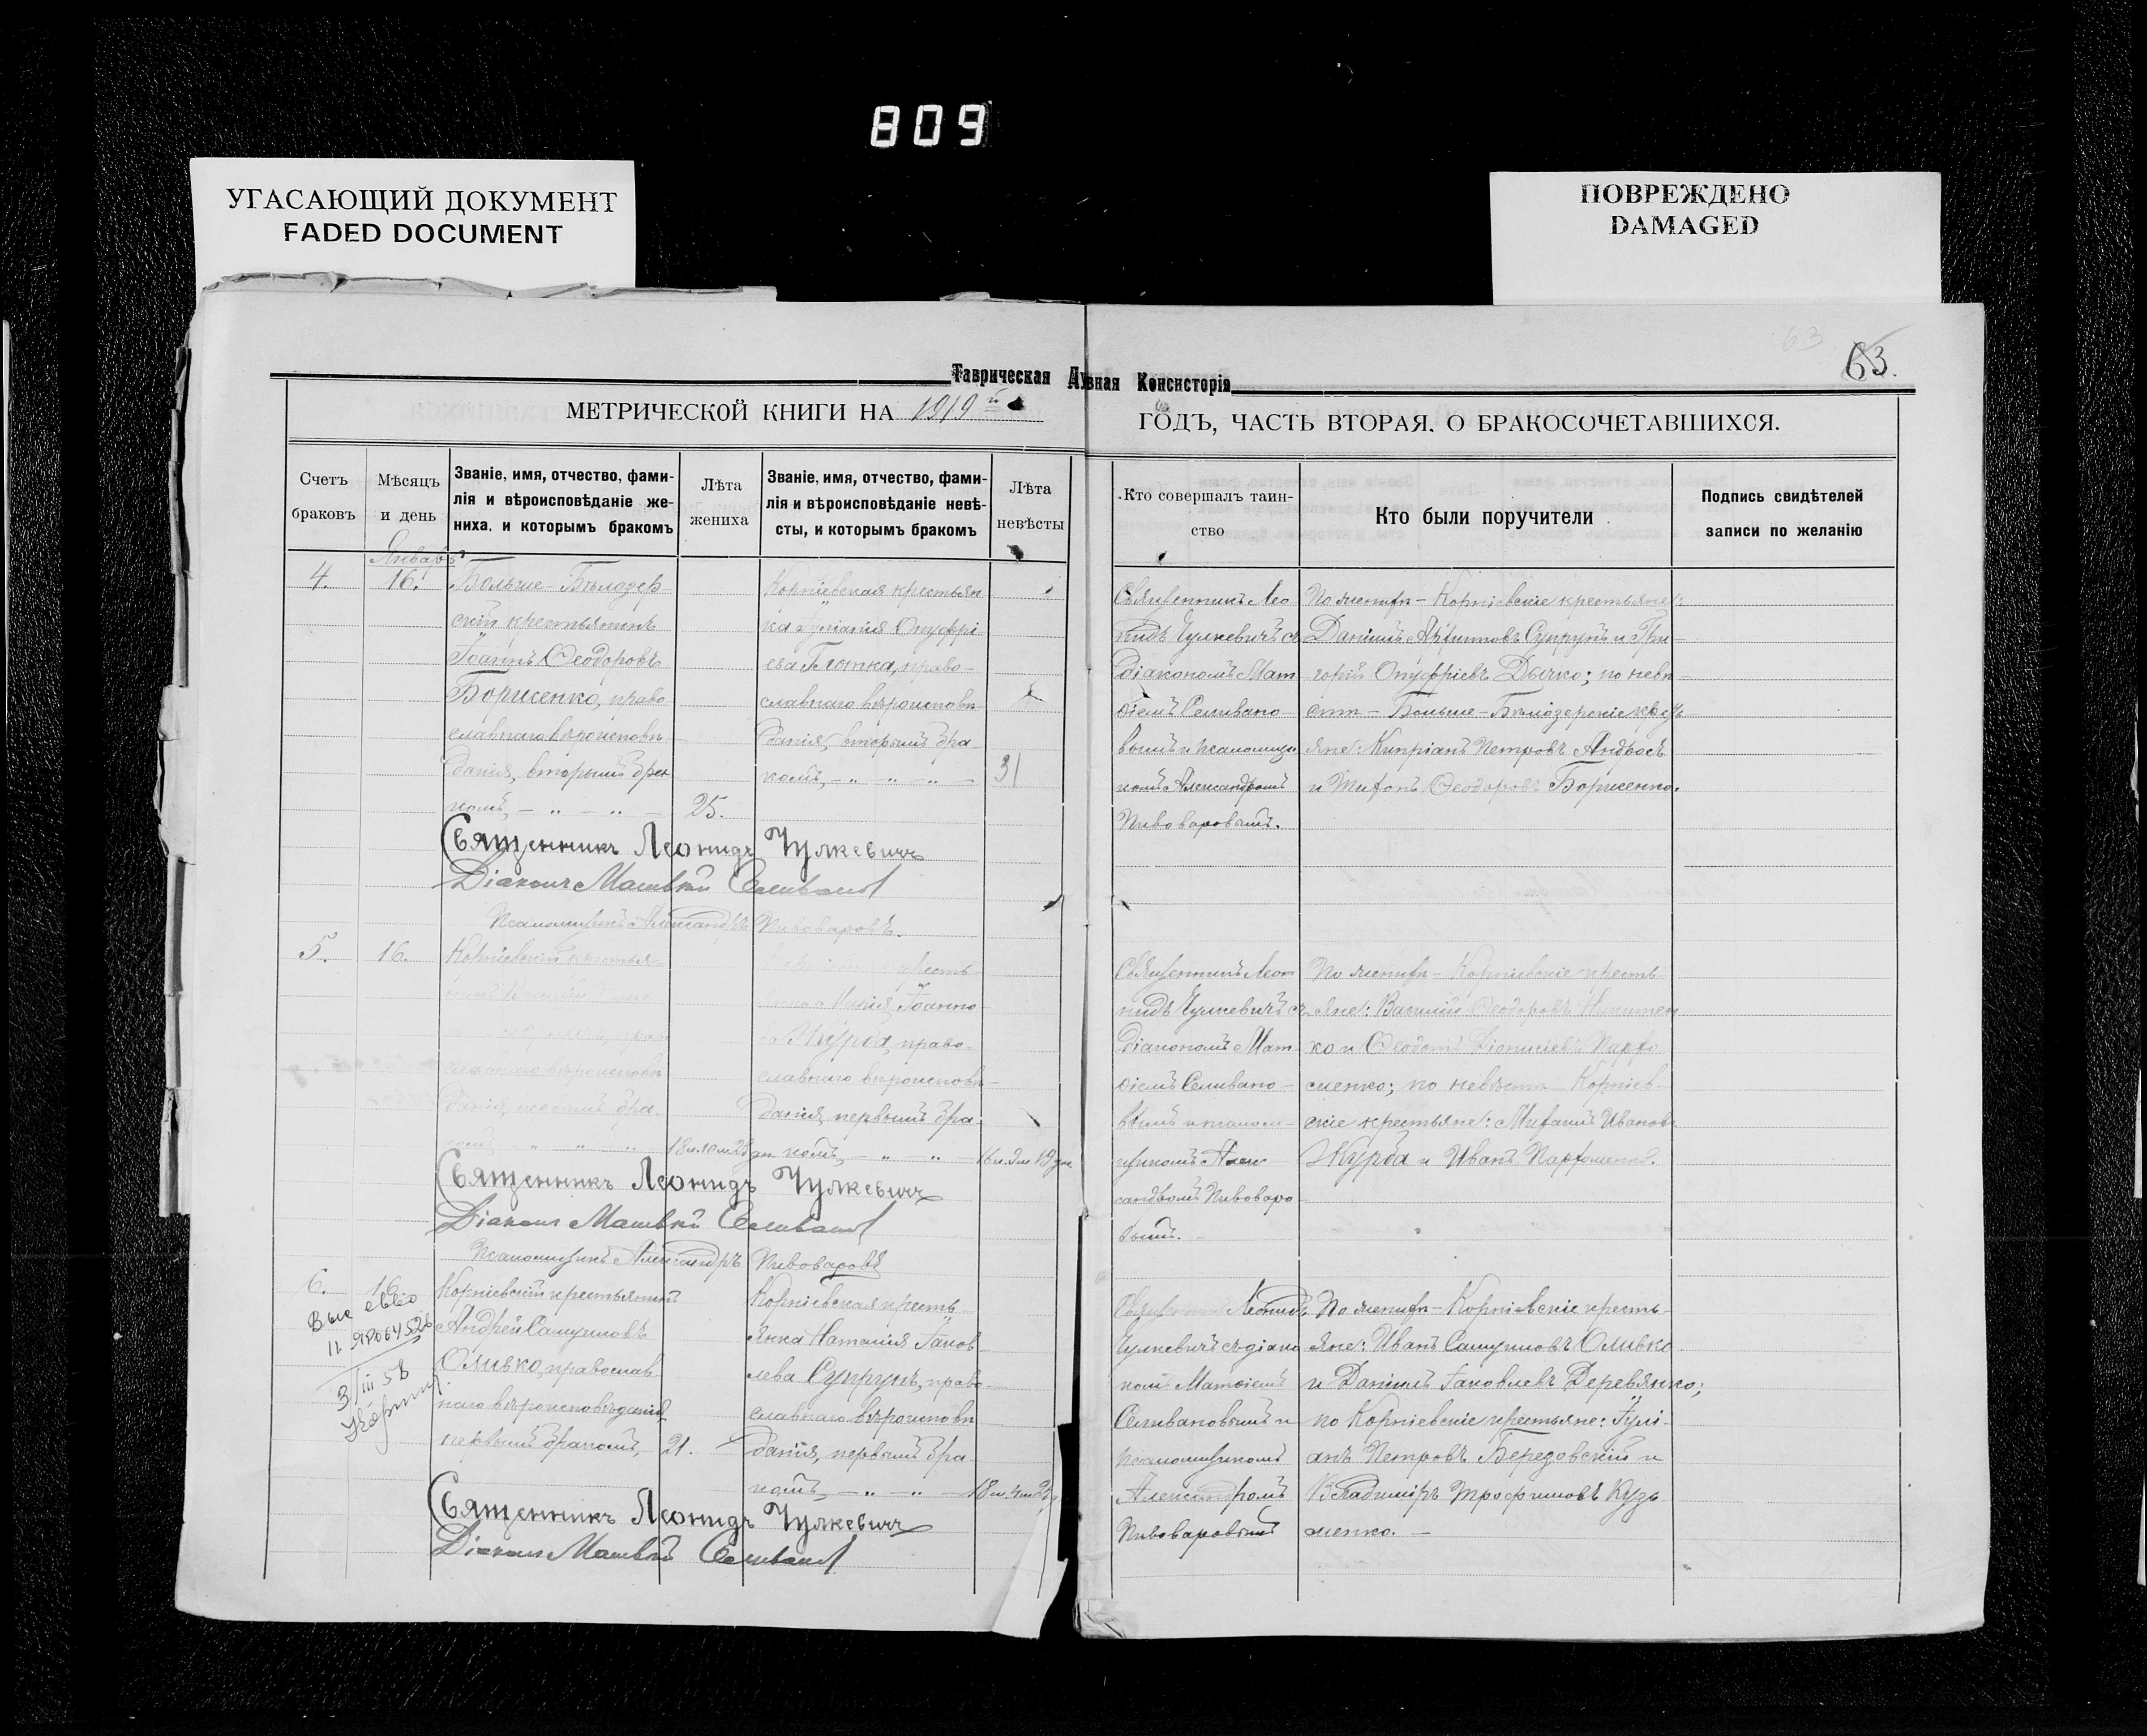 809
УГАСАЮЩИЙ ДОКУМЕНТ
FADED DOCUMENT
ПОВРЕЖДЕНО
DAMAGED
63
63.
Таврическая Духвная Консисторія
МЕТРИЧЕСКОЙ КНИГИ НА 1919й
ГОДЪ, ЧАСТЬ ВТОРАЯ, О БРАКОСОЧЕТАВШИХСЯ.
Счетъ
браковъ
Мѣсяцъ
и день
Званіе, имя, отчество, фами-
лія и вѣроисповѣданіе же-
ниха, и которымъ бракомъ
Лѣта
жениха
Званіе, имя, отчество, фами-
лія и вѣроисповѣданіе невѣ-
сты, и которымъ бракомъ
Лѣта
невѣсты
Кто совершалъ таин-
ство
Кто были поручители
Подпись свидѣтелей
записи по желанію
Январь
4.
16.
Больше-Бѣлозер
скій крестьянинъ
Іоаннъ Ѳеодоровъ
Борисенко, право
славнаго вѣроисповѣ
данія, вторымъ бра
комъ, – " – " –
25.
Корніевская крестьян
ка Іуліанія Онуфрі
ева Плотка, право-
славнаго вѣроисповѣ
данія, вторымъ бра
комъ, – " – " – " –
31
Священникъ Лео
нидъ Чулкевичъ съ
діакономъ Мат
ѳіемъ Селивано
вымъ и псаломщи
комъ Александромъ
Пивоваровымъ.
По женихѣ – Корніевскіе крестьяне:
Даніилъ Супрунъ и Гри
горій Онуфріевъ Дычко; по невѣ
стѣ – Больше-Бѣлозерскіе кресть
яне: Кипріанъ Петровъ Андрось
и Тихонъ Ѳеодоровъ Борисенко.
Священникъ Леонидъ Чулкевичъ
Діаконъ Матвѣй Селивановъ
Псаломщикъ Александръ Пивоваровъ.
5.
16.
Корніевскій крестья
нинъ Василій
прав
славнаго вѣроисповѣ
данія, первымъ бра
комъ " " "
18 л. 10 м. 28 дн.
кресть
Марія Іоанно
Журба, право-
славнаго вѣроисповѣ-
данія, первымъ бра
комъ, – " – " –
16 л. 9 м 19 дн.
Священникъ Лео
нидъ Чулкевичъ съ
діакономъ Мат
ѳіемъ Селивано
вымъ и псалом
щикомъ Алек
сандромъ Пивоваро
вымъ.
По женихѣ – Корніевскіе кресть
яне: Василій Ѳеодоровъ Никитен
ко и Ѳеодотъ Діонисіевъ Пархо
менко; по невѣстѣ Корніев-
скіе крестьяне: Михаилъ Ивановъ
Журба и Иванъ Пархоменко.
Священникъ Леонидъ Чулкевичъ
Діаконъ Матвѣй Селивановъ
Псаломщикъ Александръ Пивоваровъ
6.
16.
3/III 58
Корніевскій крестьянинъ
Андрей Самуиловъ
Оливко, православ
наго вѣроисповѣданія,
первымъ бракомъ,
21.
Корніевская кресть
янка Наталія Іаков
лева Супрунъ, право
славнаго вѣроисповѣ
данія, первымъ бра
комъ, – " – " –
Священникъ Леонидъ
Чулкевичъ съ діако
номъ Матѳіемъ
Селивановымъ и
псаломщикомъ
Александромъ
Пивоваровымъ
По женихѣ – Корніевскіе кресть-
яне: Иванъ Самуиловъ Оливко
и Даніилъ Іаковлевъ Деревянко;
по Корніевскіе крестьяне: Іулі-
анъ Петровъ Березовскій и
Владиміръ Трофимовъ Кузь
менко. –
Священникъ Леонидъ Чулкевичъ
Діаконъ Матвѣй Селивановъ